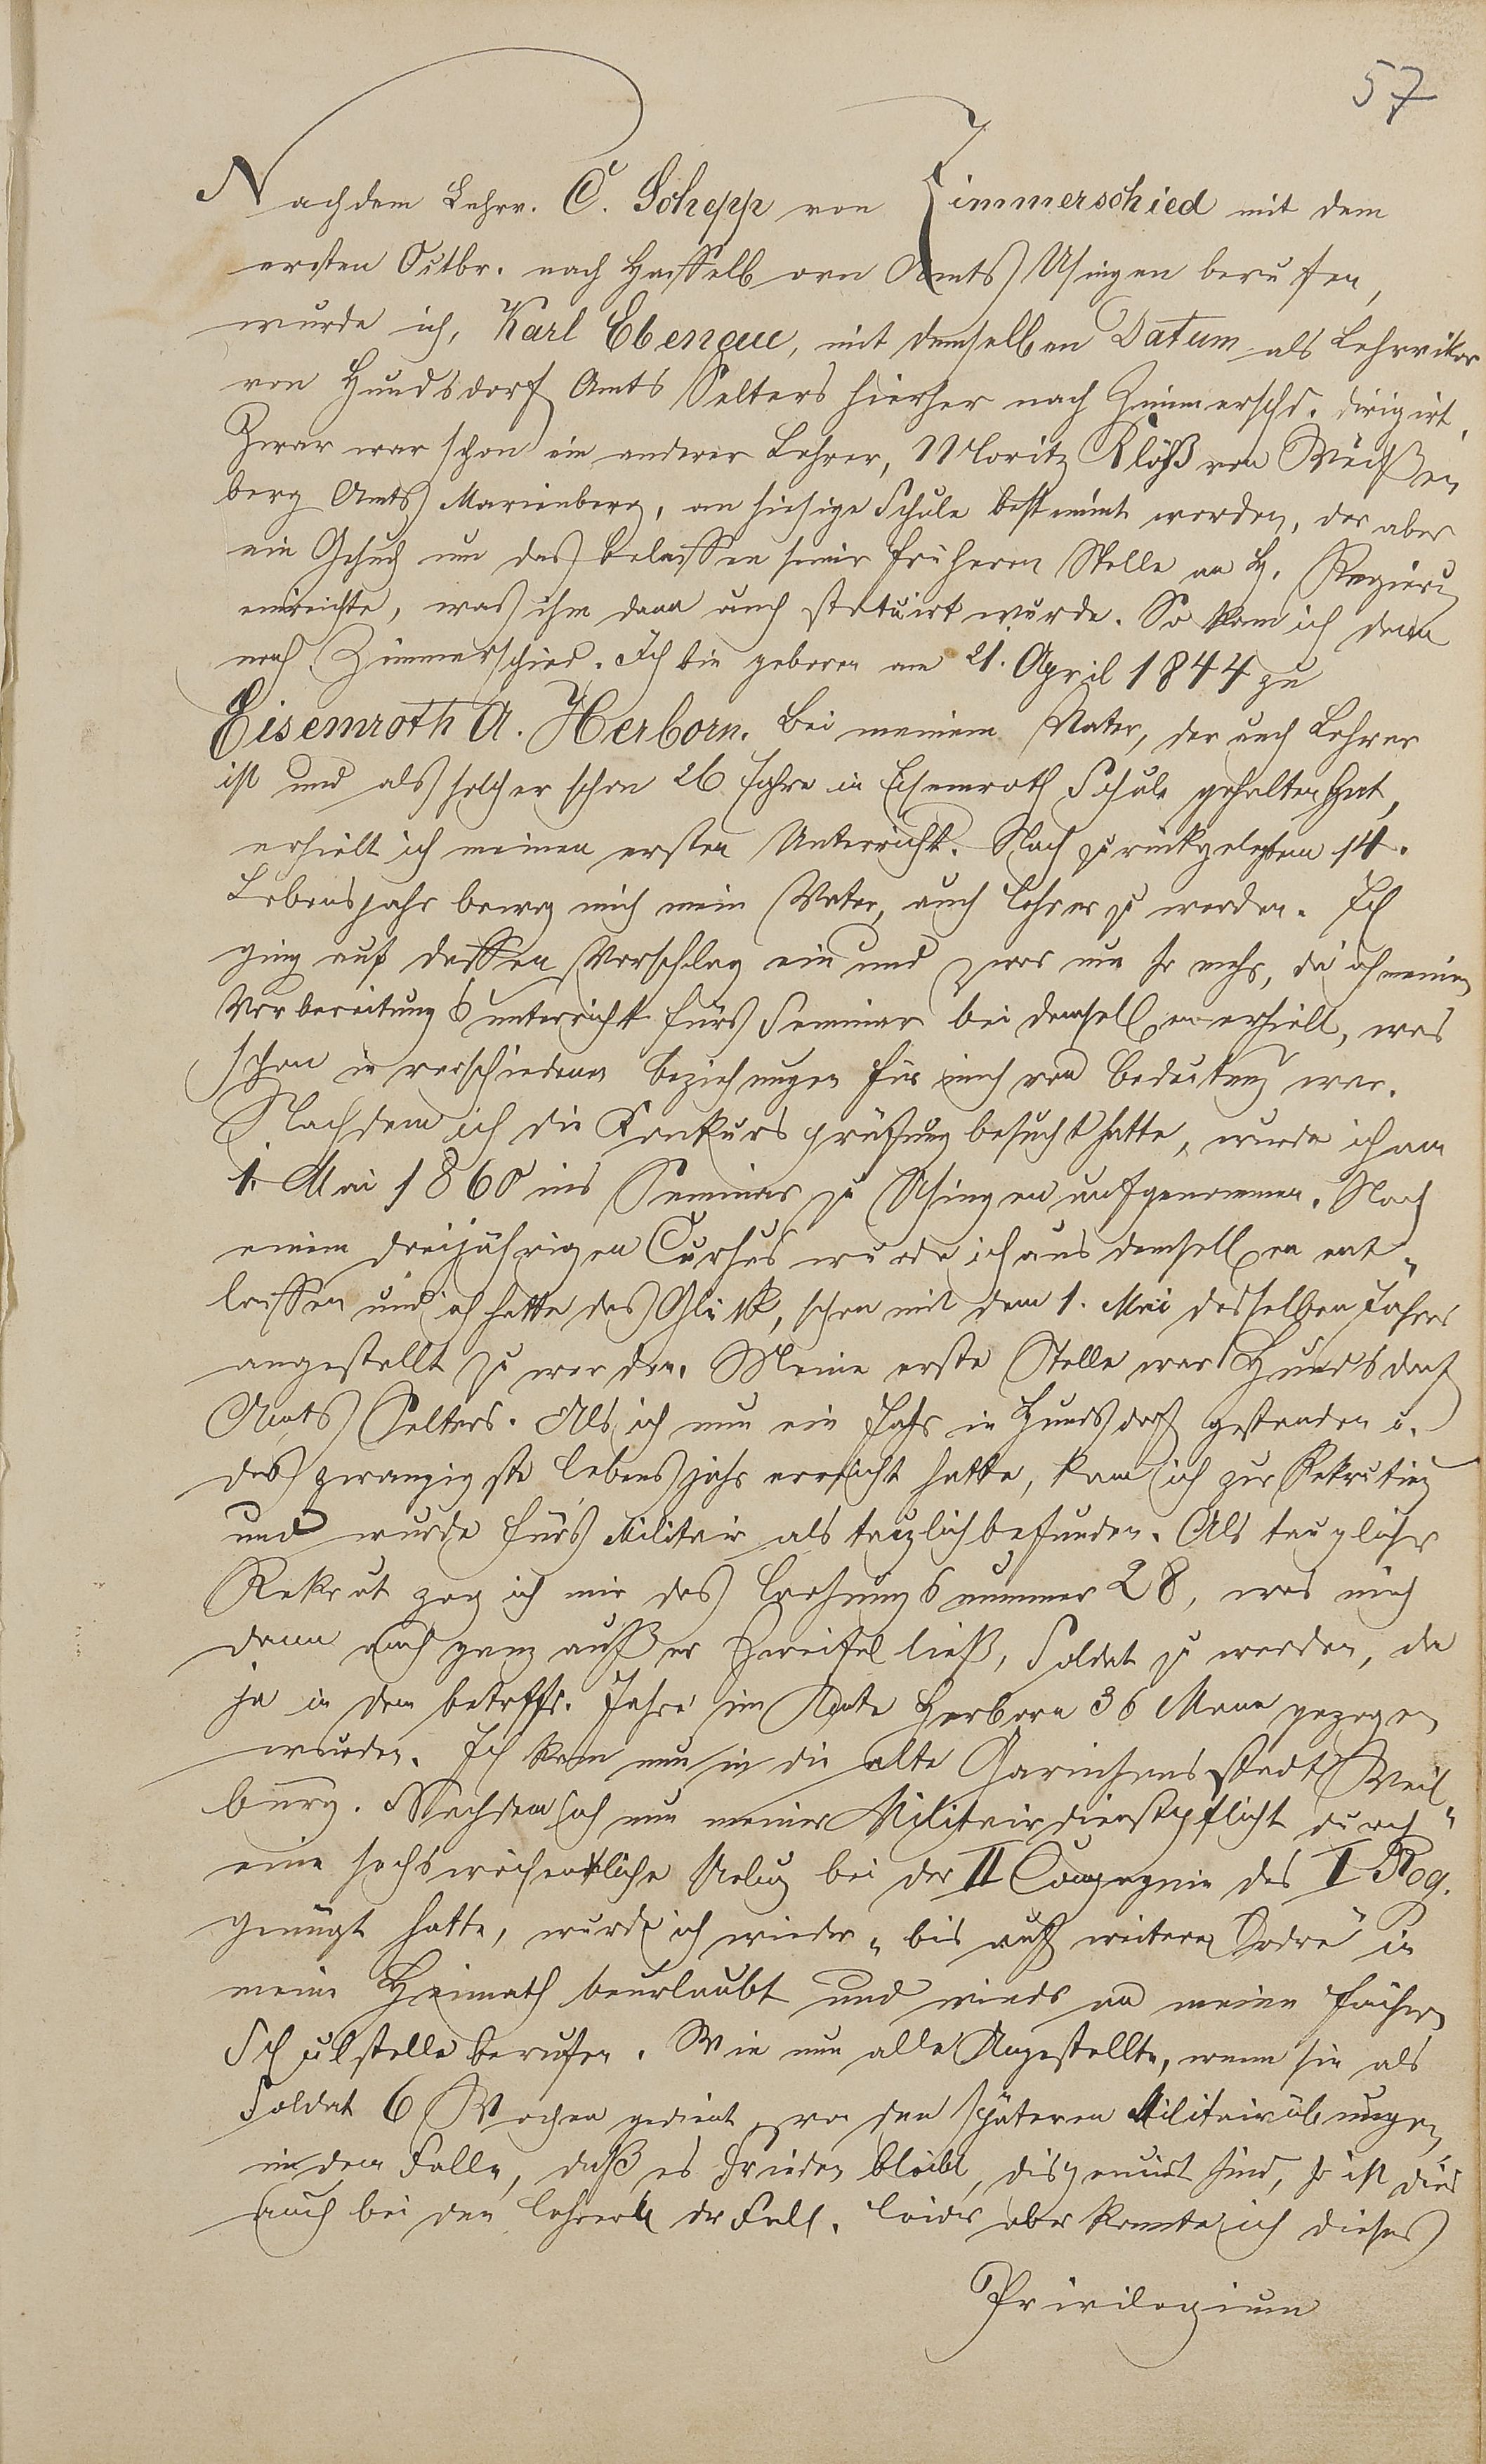 57
Nachdem Lehrv. C. Schepp von Zimmerschied mit dem
ersten Octbr. nach Hasselb orn Amts Usingen berufen,
wurde ich, Karl Ebenau, mit demselben Datum als Lehrvikar
von Hundsdorf Amts Selters hierher nach Zimmerschd. dirigirt.
Zwar war schon ein anderer Lehrer, Moritz Klöß von Weißen
berg Amts Marienberg, an hiesige Schule bestimmt worden, der aber
ein Gesuch um das Belassen seiner früheren Stelle an H. Regierung
einreichte, was ihm dann auch statuirt wurde. So kam ich denn
nach Zimmerschied. Ich bin geboren am 21. April 1844 zu
Eisemroth A. Herborn. Bei meinem Vater, der auch Lehrer
ist und als solcher schon 26 Jahre in Eisemroth Schule gehalten hat,
erhielt ich meinen ersten Unterricht. Nach zurückgelegtem 14.
Lebensjahr bewog mich mein Vater, auch Lehrer zu werden. Ich
ging auf dessen Vorschlag ein und zwar um so mehr, da ich meinen
Vorbereitungsunterricht fürs Seminar bei demselben erhielt, was
schon in verschiedenen Beziehungen für mich von Bedeutung war.
Nachdem ich die Konkursprüfung besucht hatte, wurde ich am
1. Mai 1860 ins Seminar zu Usingen aufgenommen. Nach
einem dreijährigen Cursus wurde ich aus demselben ent„
lassen und ich hatte das Glück, schon mit dem 1. Mai desselben Jahres
angestellt zu werden. Meine erste Stelle war Hundsdorf
Amts Selters. Als ich nun ein Jahr in Hundsdorf gestanden u.
das zwanzigste Lebensjahr erreicht hatte, kam ich zur Rekrutirg
und wurde für's Militair als tauglich befunden. Als tauglicher
Rekrut zog ich mir das Loosungsnummer 28, was mich
dann auch ganz außer Zweifel ließ, Soldat zu werden, da
ja in dem betreffd. Jahre im Amte Herborn 36 Mann gezogen
wurden. Ich kam nun in die alte Garnisonsstadt Weil„
burg. Nachdem ich nun meiner Militairdienstpflicht durch
eine sechswöchentliche Uebug bei der II Compagnie des I Reg.
genügt hatte, wurde ich wieder „bis auf weitere Ordre" in
meine Heimath beurlaubt und wieder an meine frühere
Schulstelle berufen. Wie nun alle Angestellte, wenn sie als
Soldat 6 Wochen gedient, von den späteren Militairübungen,
in dem Falle, daß es Frieden bleibt, dispensirt sind, so ist dies
auch bei den Lehrern der Fall. Leider aber konnte ich dieses
Privilegium